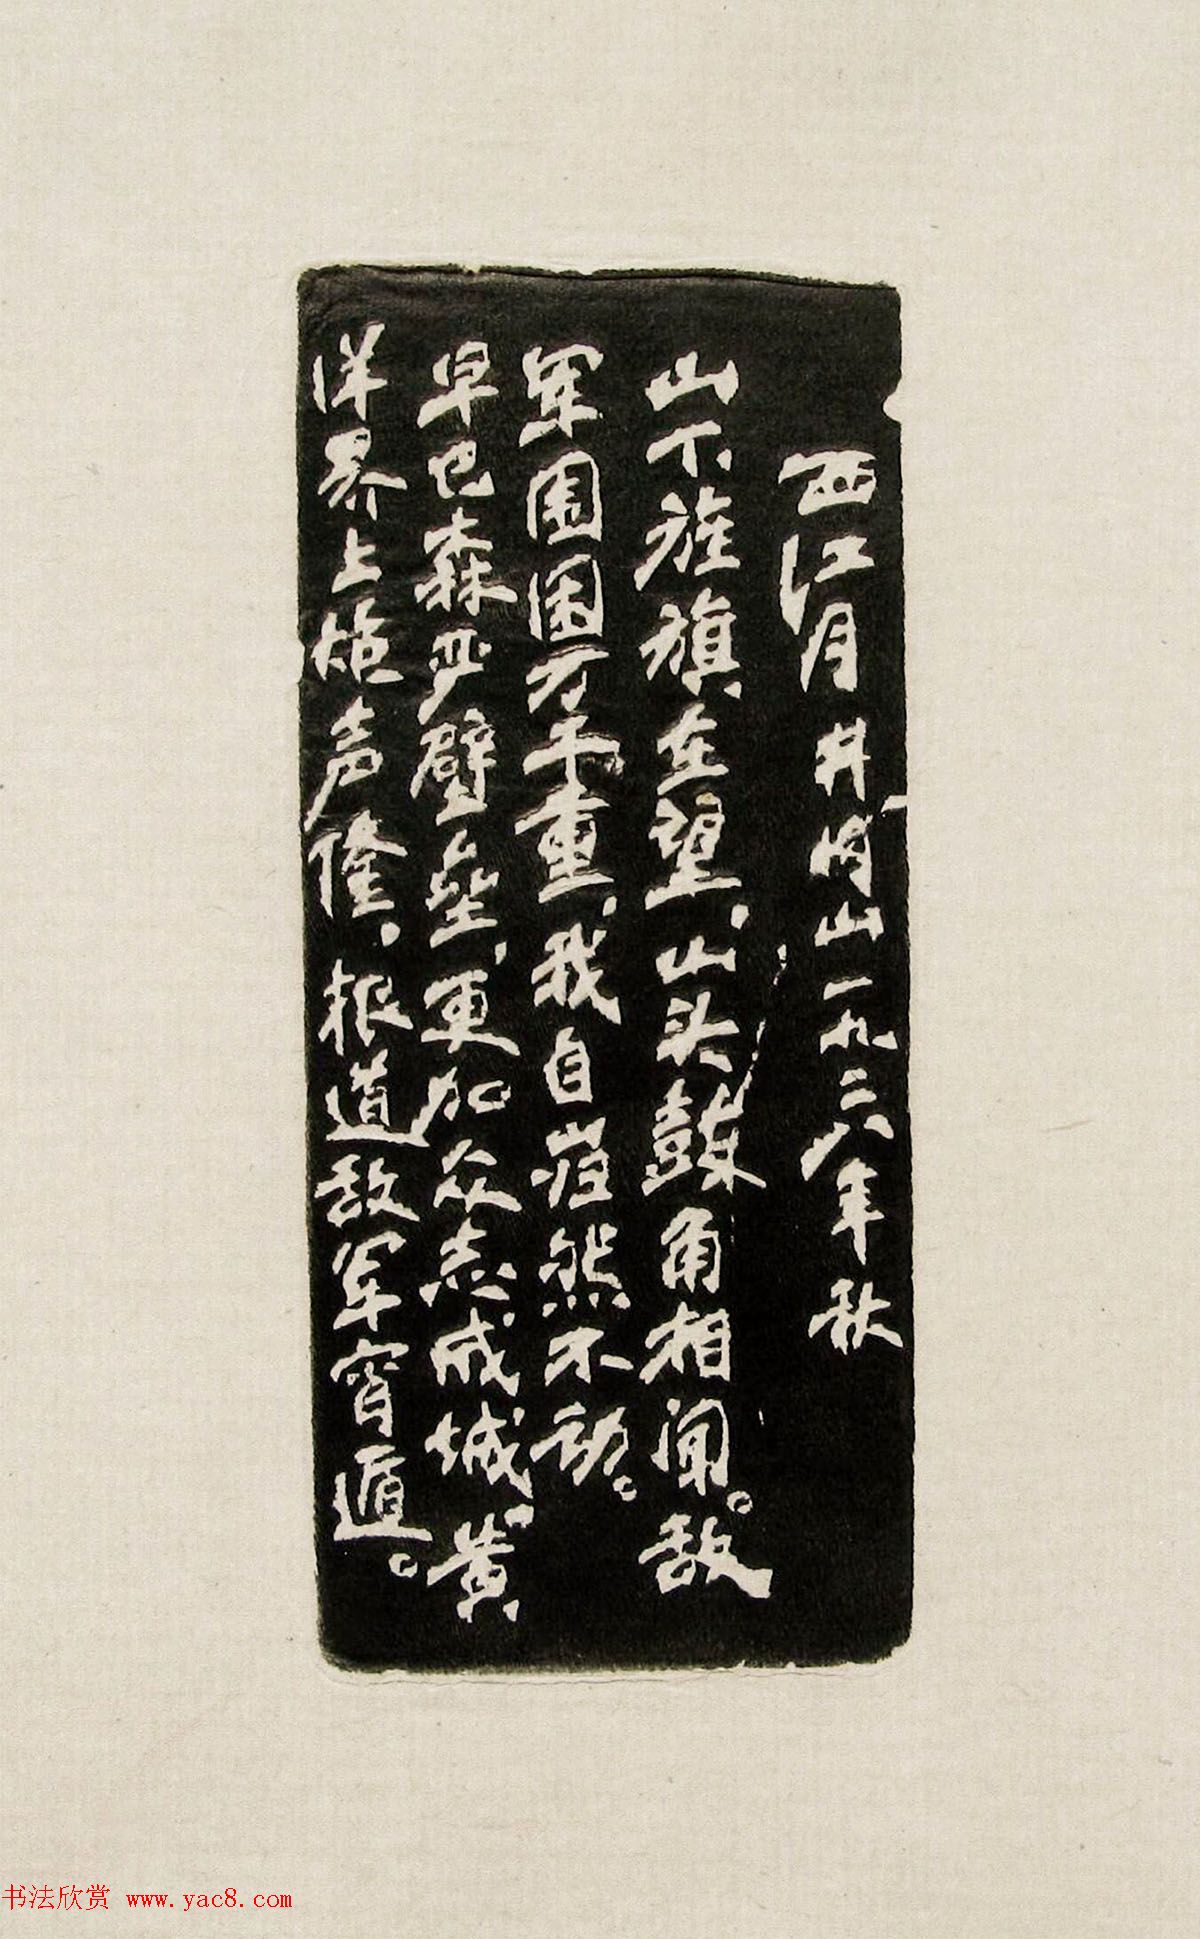 西江月 井岗山 一九二八年秋
山下旌旗在望，山头鼓角相闻。敌
军围困万千重，我自岿然不动。
早已森严壁垒，更加众志成城，黄
洋界上炮声隆，报道敌军宵遁。
书法欣赏 www.yac8.com